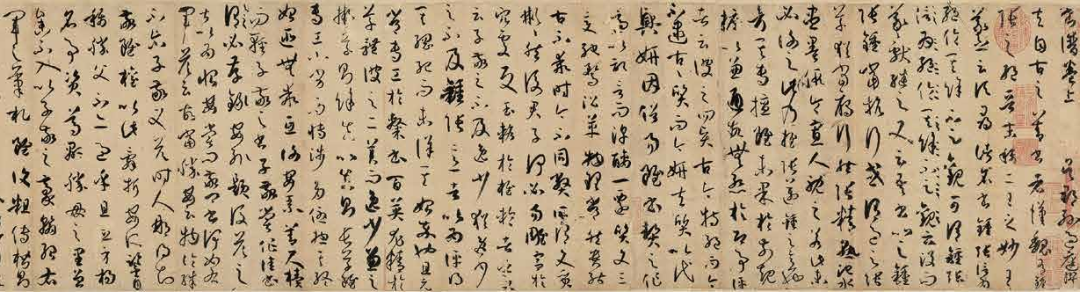 書譜卷上 吳郡孫過庭撰
夫自古之善書者漢魏有鍾
張之絕晉末稱二王之妙王
羲之云頃尋諸名書鍾張信
為絕倫其餘不足觀可謂鍾張
云沒而
羲獻繼之又云吾書比之鍾
張鍾當抗行或謂過之張
草猶當雁行然張精熟池水
盡墨假令寡人耽之若此未
必謝之此乃推張邁鍾之意
也考其專擅雖未果於前規
摭以兼通故無慚於即事評
者云彼之四賢古今特絕而今
不逮古古質而今妍夫質以代
興妍因俗易雖書契之作適
以記言而淳醨一遷質文三
變馳鶩沿革物理常然貴能
古不乖時今不同弊所謂文質
彬彬然後君子何必易雕宮於
穴處反玉輅於椎輪者乎又
云子敬之不及逸少猶逸少
之不及鍾張意者以為評得
其綱紀而未詳其始卒也且元
常專工於隸書百英尤精於
草體彼之二美而逸少兼之
擬草則餘真比真則長草雖
專工小劣而博涉多優總其終
始匪無乖互謝安素善尺牘
而輕子敬之書子敬嘗作佳書
與之謂必存錄安輒題後答之
甚以為恨安嘗問敬卿書何如右
軍答云故當勝安云物論殊
不爾子敬又答時人那得知
敬雖權以此辭折安所鑒自
稱勝父不亦過乎且立身揚
名事資尊顯勝母之里曾
參不入以子敬之豪翰紹右
軍之筆札雖復粗傳楷則